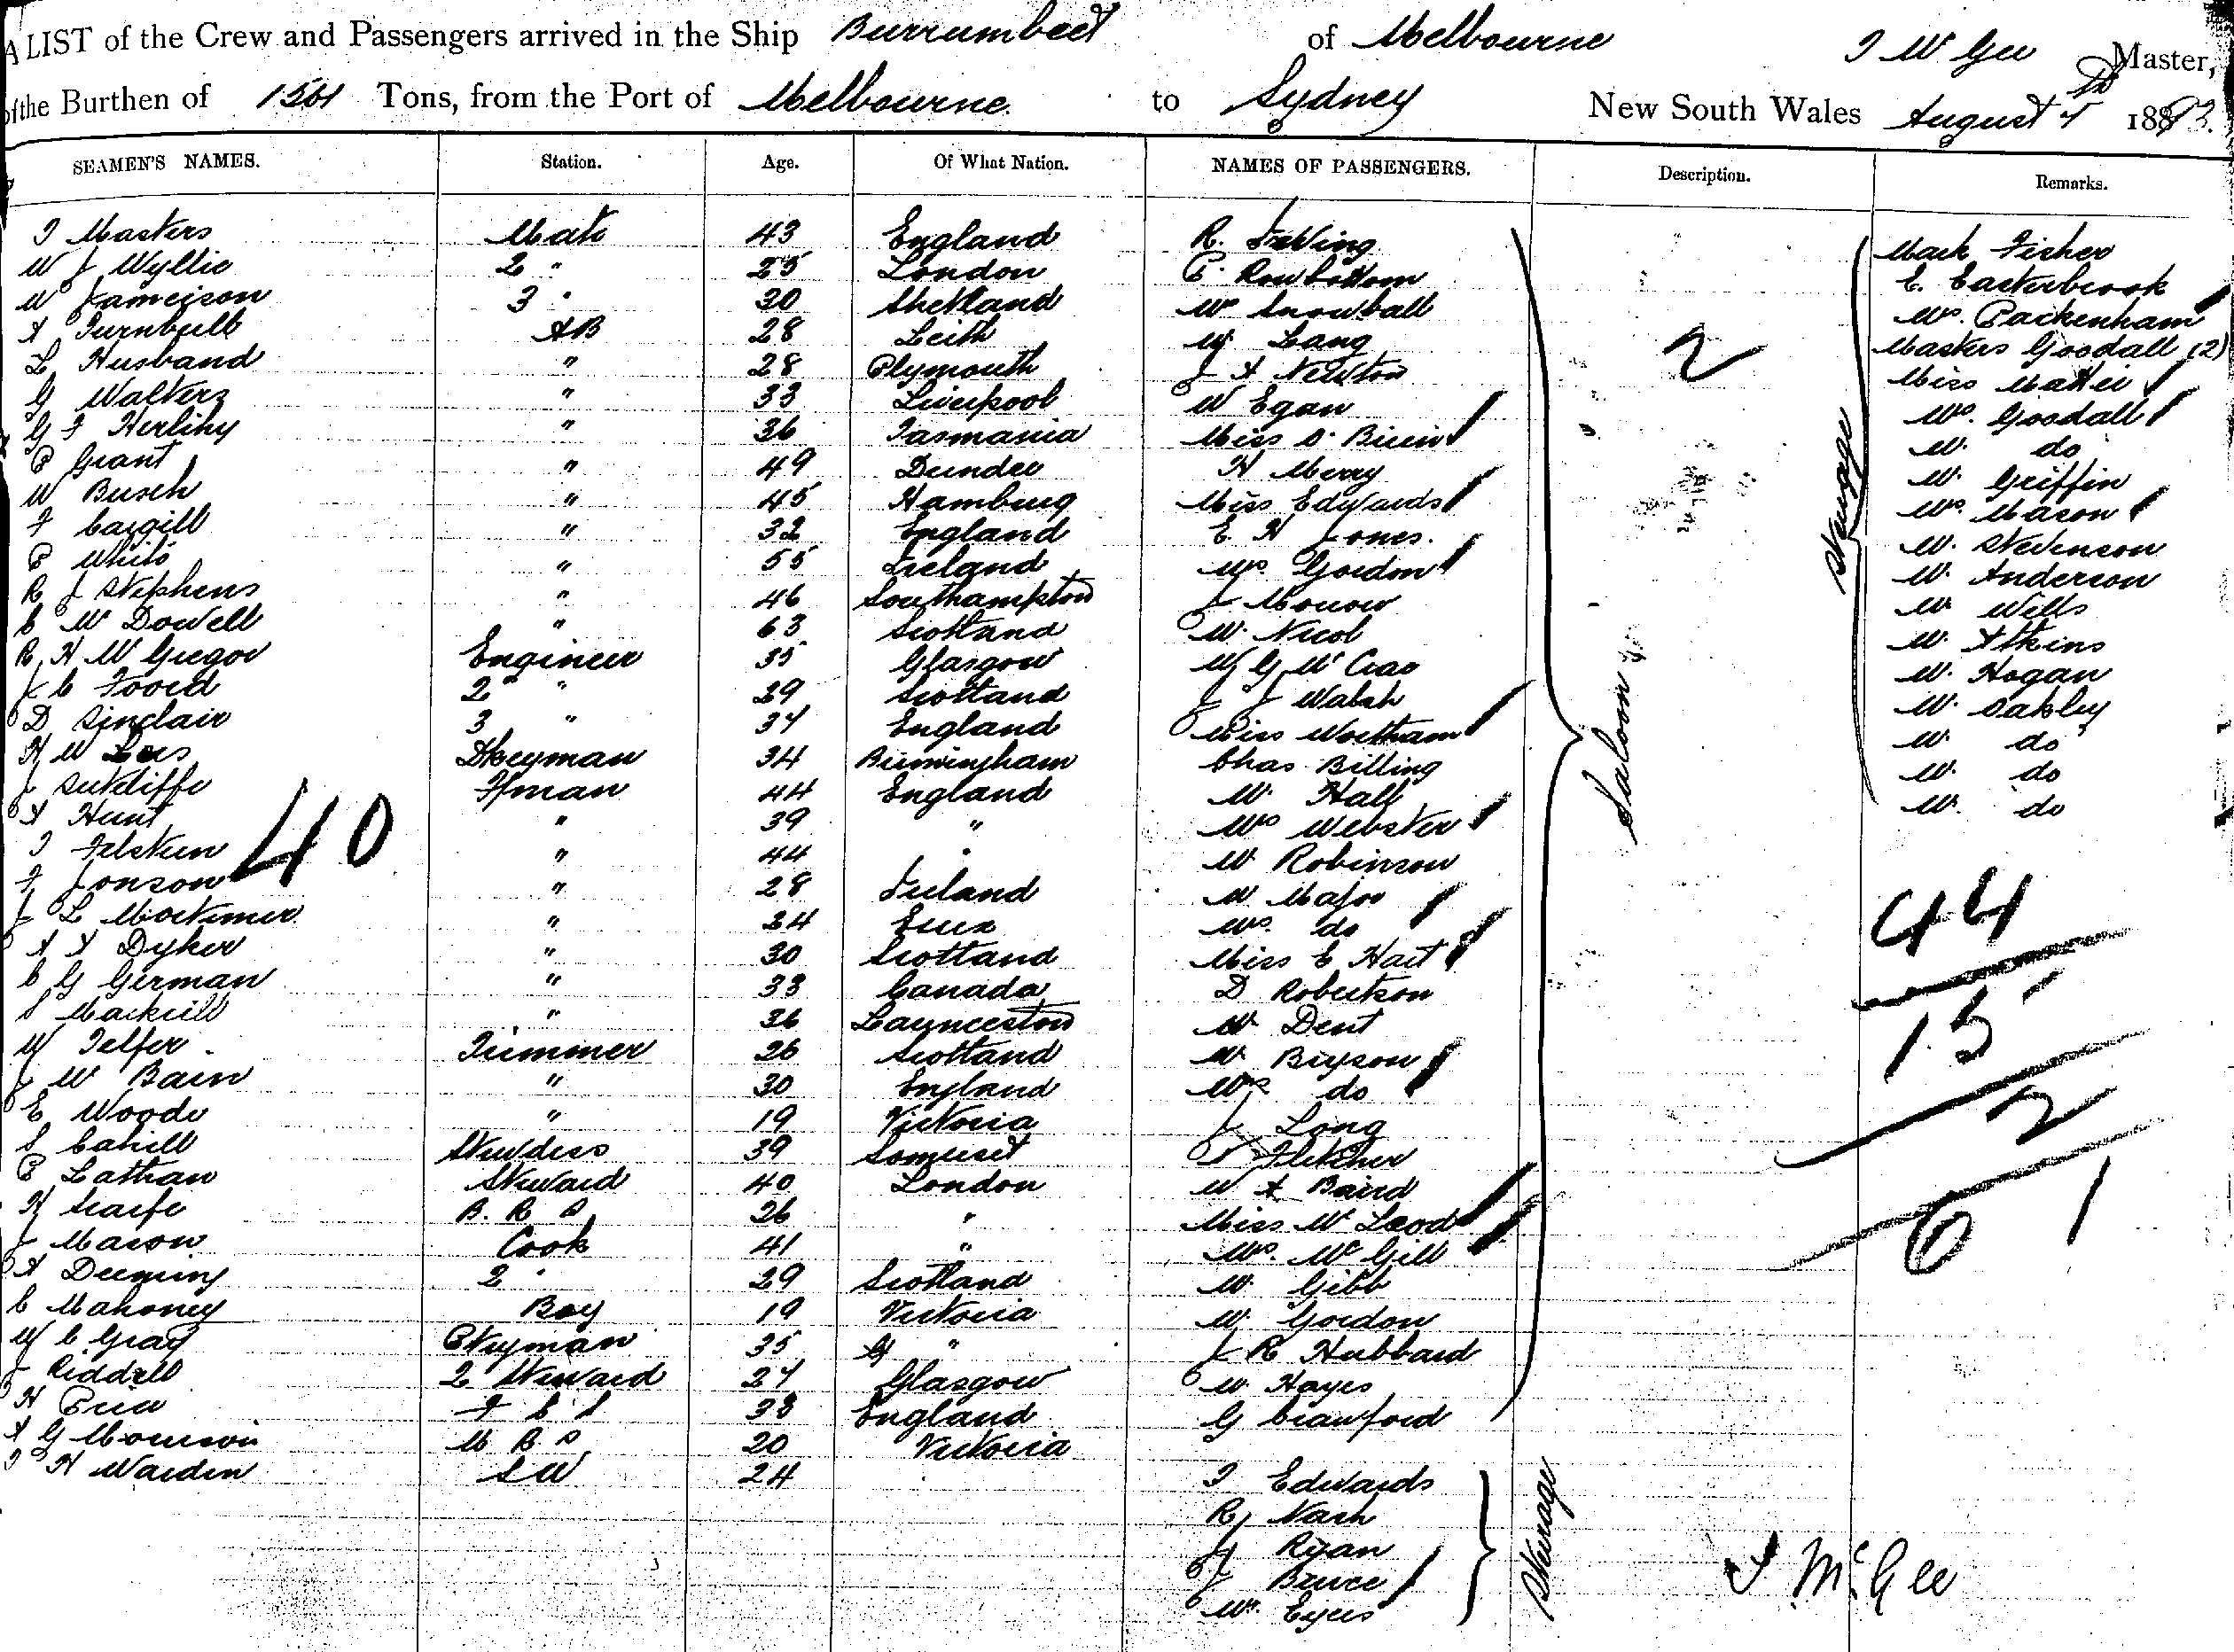 A LIST of the Crew and Passengers arrived in the Ship Burrumbeet of Melbourne J Mc Gee Master,
of the Burthen of Tons, from the Port of Melbourne to Sydney New South Wales August 188
SEAMEN'S NAMES. Station. Age. Of What Nation. NAMES OF PASSENGERS. Description. Remarks.
Masters Mate 43 England R. Mark Fisher
W J Wyllie 2 " 25 London Rowbottom E. Easterbrook
W Jameison 3 " 30 Shetland Mr Snowball Mrs. Packenham
A Turnbull AB 28 Leith Lang Masters Goodall (2)
L Husband " 28 Plymouth J A Newton Miss
G Walters " 33 Liverpool W Egan Mrs. Goodall
G F Herlihy " 36 Tasmania Miss O'Brien Mr. do
P Grant " 49 Dundee H Merry Mr. Griffin
W Busch " 45 Hamburg Miss Edwards Mrs. Mason
F Cargill " 32 England E. H Jones. Mr. Stevenson
P White " 55 Ireland Mrs. Gordon Mr. Anderson
R J Stephens " 46 Southampton J Morrow Mr. Wells
C Mc Dowell " 63 Scotland Mr. Nicol Mr. Atkins
R H Mc Gregor Engineer 35 Glasgow W G Mc Crae Mr. Hogan
J C Foord 2 " 29 Scotland J J Walsh Mr. Oakley
D Sinclair 3 " England Miss Wortham Mr. do
H W Lees Dkeyman 34 Birmingham Chas Billing Mr. do
J Sutcliffe Fman 44 England Mr. Hall Mr. do
A Hunt " 39 " Mrs Webster
" 44 " Mr Robinson
F Jonson 40 " 28 Ireland Mr Major 44
J L Mortimer " 24 Essex Mrs. do
A A Dyker " 30 Scotland Miss E Hart
C G German " 33 Canada D Robertson 15
S " 36 Launceston Mr Dent
W Telfer Trimmer 26 Scotland Mr. Bryson
J W Bain " 30 England Mrs do 2
E Woods " 19 Victoria J Long
S Cahill Stewdess 39 Somerset Fletcher
P Latham Steward 40 London W A Baird
H Scarfe B. R S 26 " Miss Mc Leod 61
J Mason Cook 41 " Mrs. Mc Gill
A Deeming 2 " 29 Scotland Mr. Gibb
C Mahoney Boy 19 Victoria Mr. Gordon
W C Gray Ptryman 35 " J R Hubbard
J Riddell 2 Steward Glasgow Mr. Hayes
H Price F C S 33 England G Crawford
A G Morrison M B S 20 Victoria
H Warden S W 24
Edwards
R Nash
J Ryan
J Bruce
Mr. Eyers
2
Saloon
Steerage
Steerage
J McGee